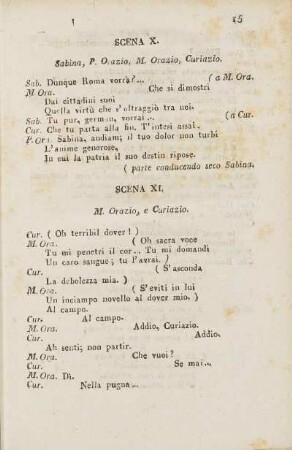 15
SCENA X.
Sabina, P. Orazio, M. Orazio, Curiazio.
Sab. Dunque Roma vorrà?... (a M. Ora.
M. Ora. Che si dimostri
Dai cittadini suoi
Quella virtù che s'oltraggiò tra noi.
Sab. Tu pur, german, vorrai... (a Cur.
Cur. Che tu parta alfin. T'intesi assai.
P. Ora. Sabina, andiam; il tuo dolor non turbi
L'anime generose,
In cui la patria il suo destin ripose.
( parte conducendo seco Sabina.
SCENA XI.
M. Orazio, e Curiazio.
Cur. ( Oh terribil dover! )
M. Ora. ( Oh sacra voce
Tu mi penetri il cor... Tu mi domandi
Un caro sangue; tu l'avrai. )
Cur. ( S'asconda
La debolezza mia. )
M. Ora. ( S'eviti in lui
Un inciampo novello al dover mio. )
Al campo.
Cur. Al campo.
M. Ora. Addio, Curiazio.
Cur. Addio.
Ah senti; non partir.
M. Ora. Che vuoi?
Cur. Se mai...
M. Ora. Di.
Cur. Nella pugna...